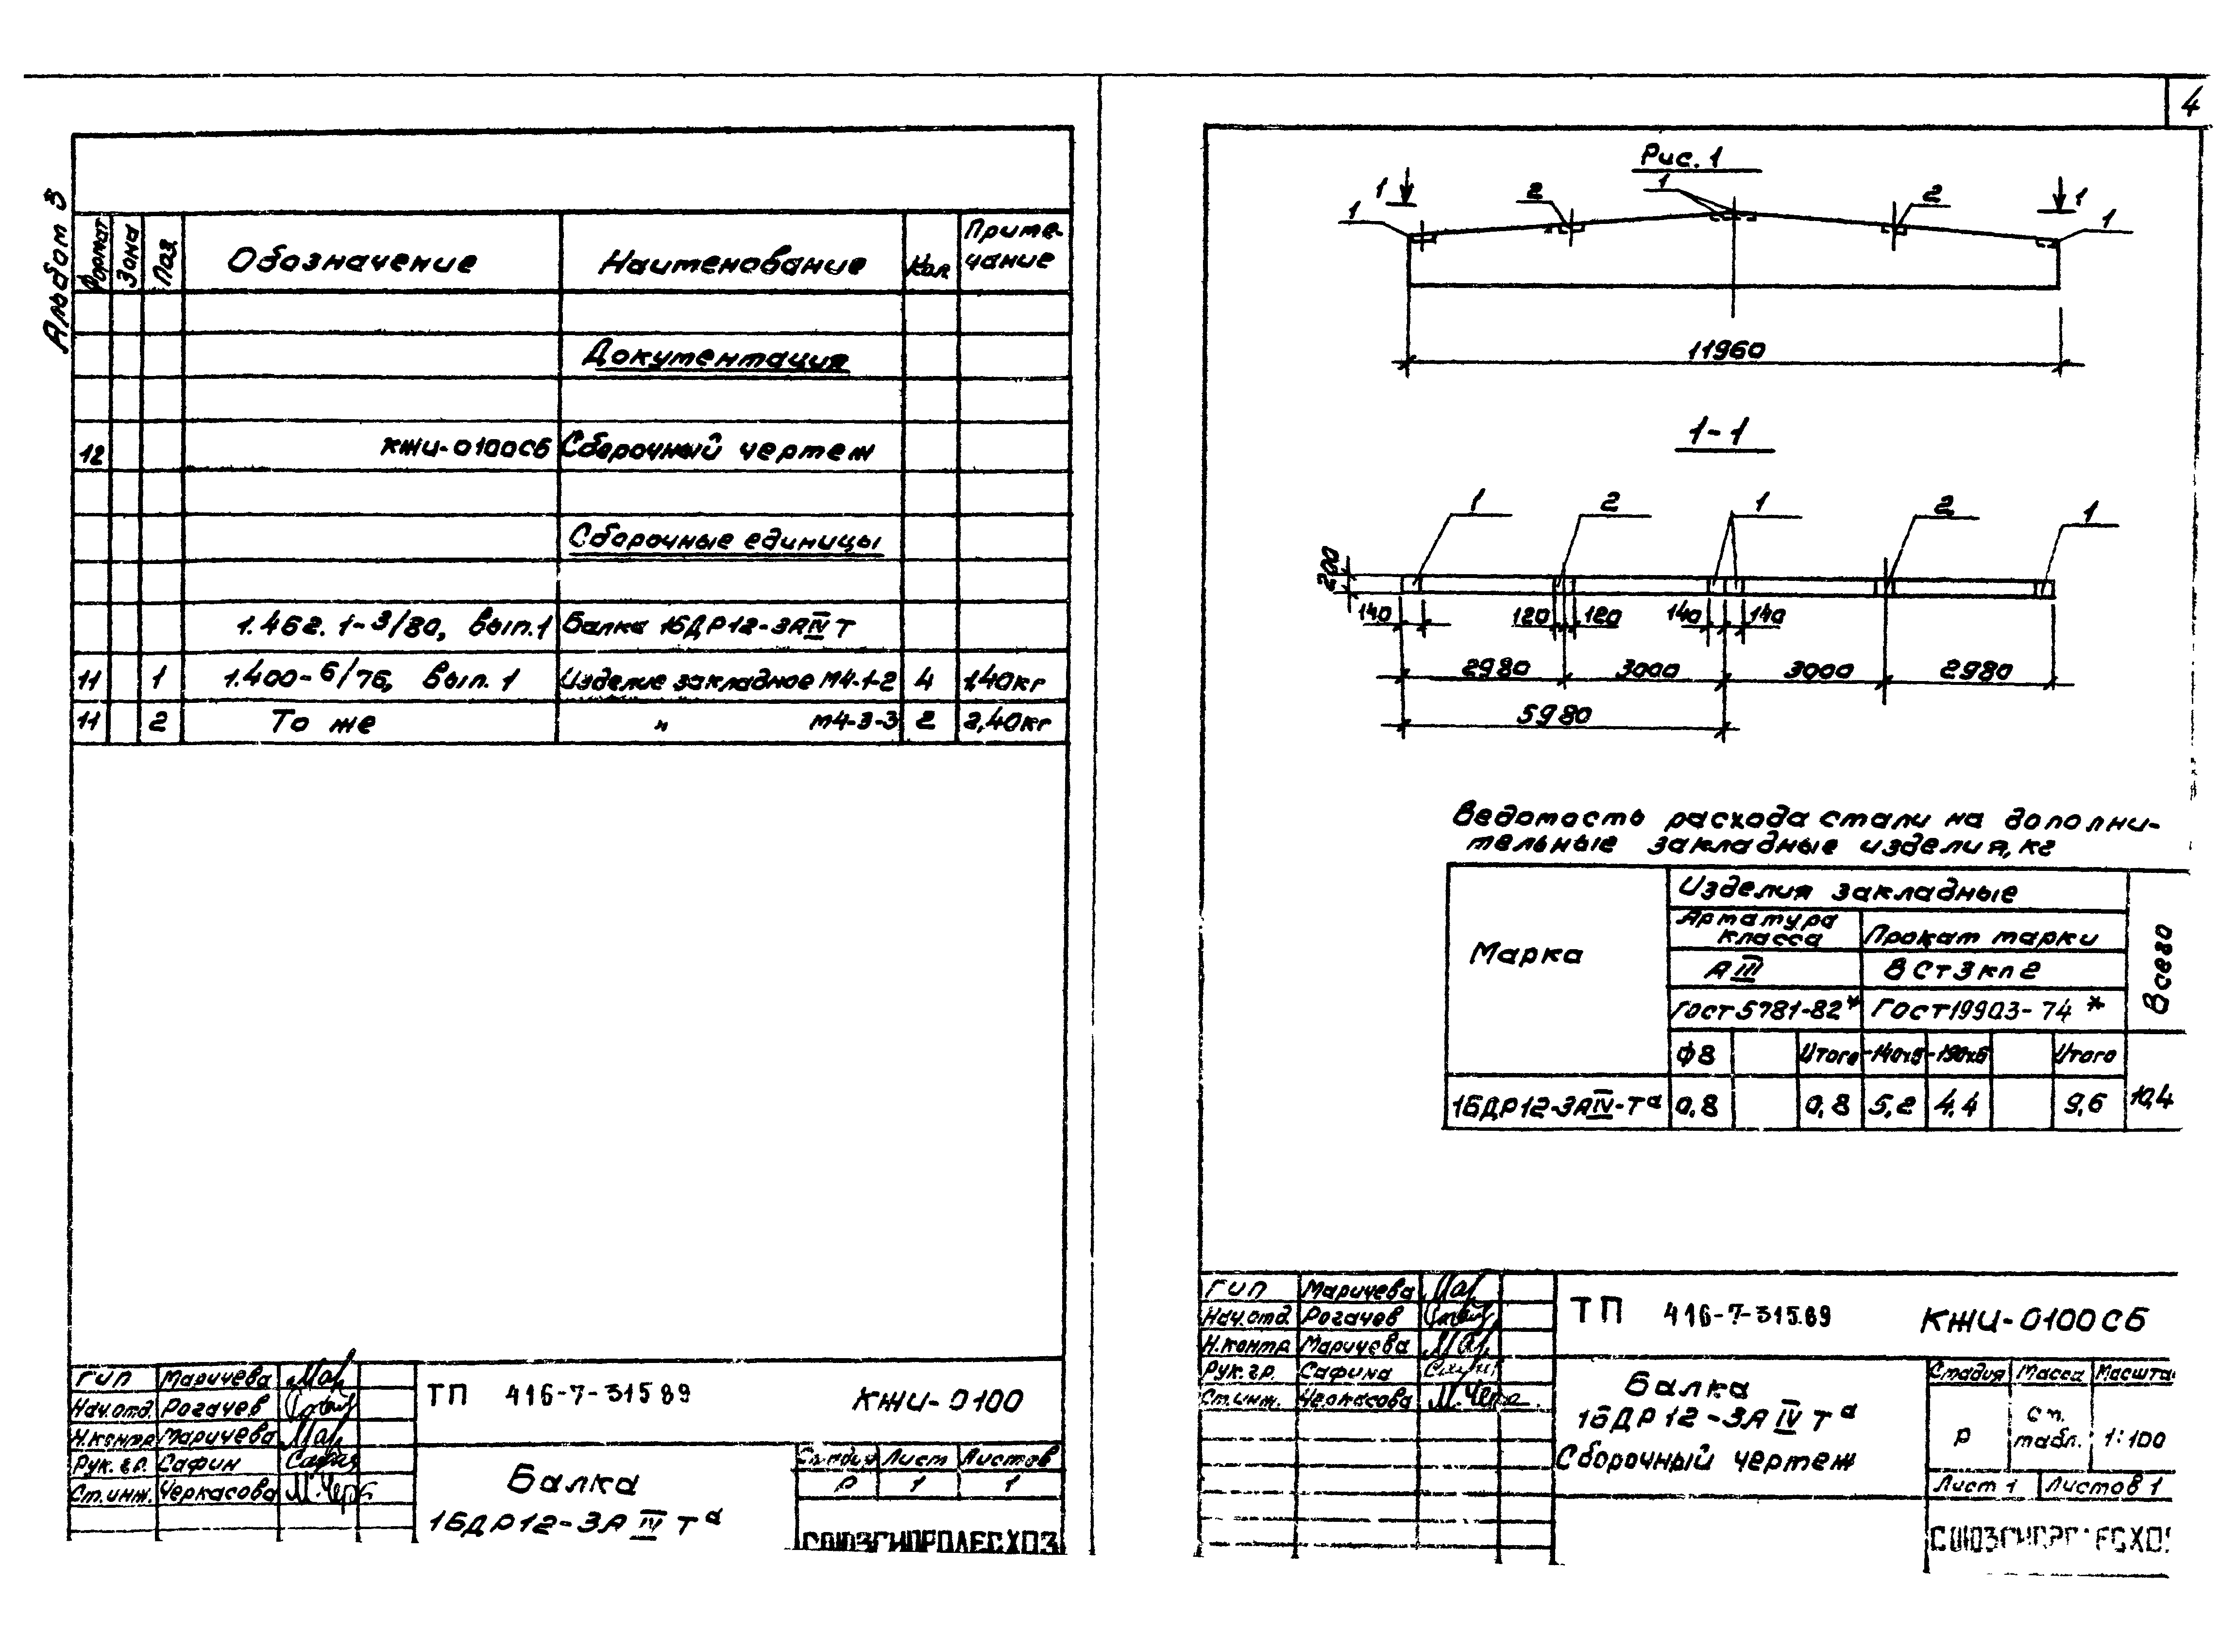 4
Альбом 3
Формат Зона Поз. Обозначение Наименование Кол. Приме-
чание
Документация
12 КЖИ-0100СБ Сборочный чертеж
Сборочные единицы
1.462.1-3/80, вып.1 Балка 1БДР12-3АIVТ
11 1 1.400-6/76, вып. 1 Изделие закладное М4-1-2 4 1,40кг
11 2 То же " М4-3-3 2 2,40кг
ГИП Маричева
Нач.отд. Рогачев
Н.контр Маричева
Рук. гр. Сафин
Ст.инж. Черкасова
ТП 416-7-315 89 КЖИ-0100
Балка
1БДР12-3А IV Та
Стадия Лист Листов
Р 1 1
СОЮЗГИПРОЛЕСХОЗ
Рис. 1
1 1 2 1 2 1 1
11960
1-1
1 2 1 2 1
200
140 120 120 140 140
2980 3000 3000 2980
5980
Ведомость расхода стали на дополни-
тельные закладные изделия, кг
Марка Изделия закладные Всего
Арматура
класса Прокат марки
АIII ВСт3кп2
ГОСТ5781-82* ГОСТ19903-74*
ф8 Итого -140х8 -190х6 Итого
1БДР12-3АIV-Та 0,8 0,8 5,2 4,4 9,6 10,4
ГИП Маричева
Нач.отд. Рогачев
Н.контр Маричева
Рук.гр. Сафина
Ст.инж. Черкасова
ТП 416-7-315.89 КЖИ-0100СБ
Балка
1БДР12-3А IV Та
Сборочный чертеж
Стадия Масса Масшта
Р См.
табл. 1:100
Лист 1 Листов 1